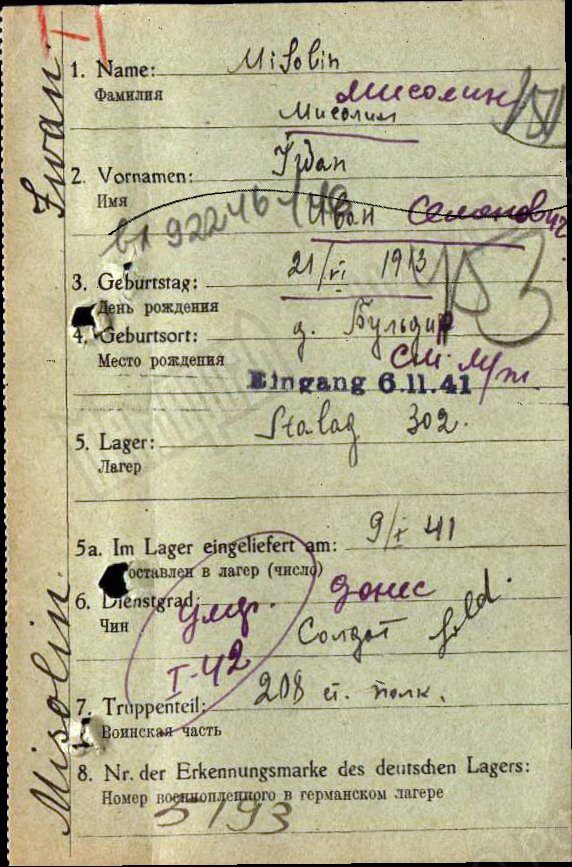 Iwan.
Misolin.
1. Name: Misolin
Фамилия
Мисолин
Мисолин
2. Vornamen: Iwan
Имя
Иван Семенович
вх 92246/46
3. Geburtstag: 21/VI 1913
День рождения
153
4. Geburtsort: д.
Место рождения
Eingang 6.11.41
5. Lager: Stalag 302.
Лагер
5a. Im Lager eingeliefert am: 9/X 41
оставлен в лагер (число)
6. Dienstgrad:
Чин
Солдат Sold.
умер.
I-42
7. Truppenteil: 208 ст. полк.
Воинская часть
8. Nr. der Erkennungsmarke des deutschen Lagers:
Номер военнопленного в германском лагере
5193